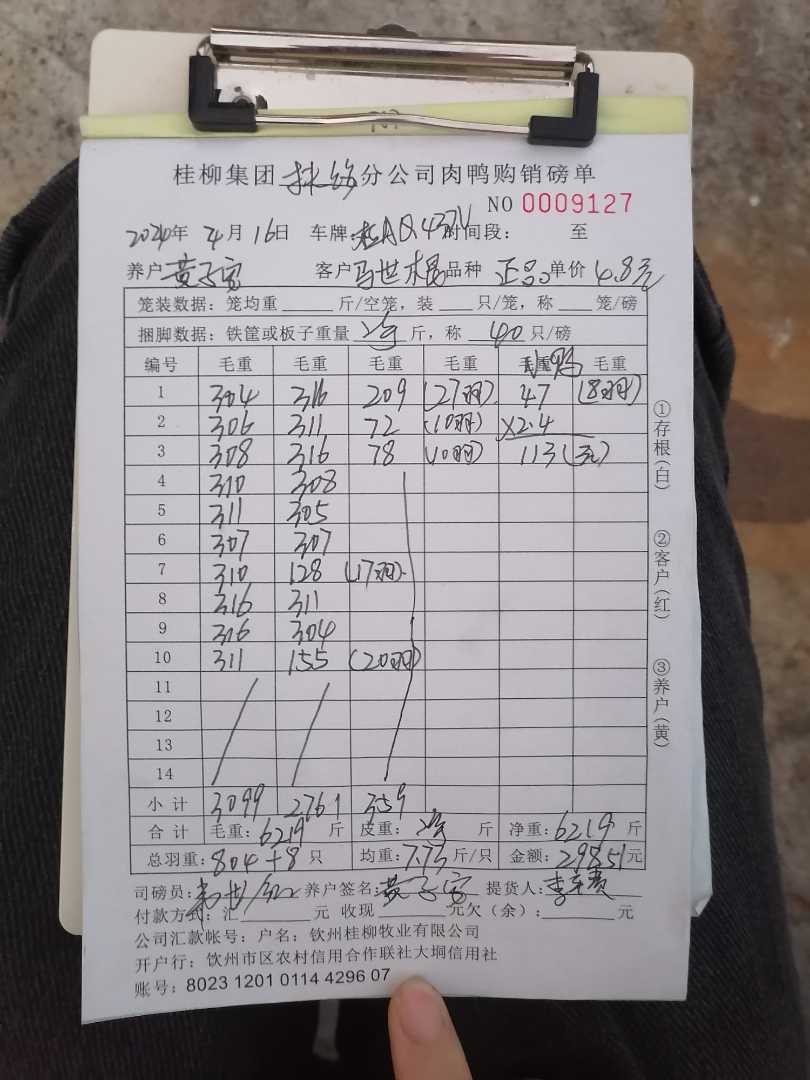 桂柳集团 分公司肉鸭购销磅单
NO 0009127
2024年 4月 16日 车牌: 时间段: 至
养户 黄子 客户 马世 品种 正品 单价 4.8元
笼装数据: 笼均重 斤/空笼, 装 只/笼, 称 笼/磅
捆脚数据: 铁筐或板子重量 斤, 称 40 只/磅
编号 毛重 毛重 毛重 毛重 毛重 毛重
1 304 316 209 (27羽) 47 (8羽)
2 306 311 72 (10羽) ×2.4
3 308 316 78 (10羽) 113(元)
4 310 308
5 311 305
6 307 307
7 310 128 (17羽)
8 316 311
9 316 304
10 311 155 (20羽)
11
12
13
14
小计 3099 2761 359
合计 毛重: 6219 斤 皮重: 斤 净重: 6219 斤
总羽重: 804+8 只 均重: 7.73 斤/只 金额: 29851元
司磅员: 养户签名: 黄子 提货人: 李
付款方式: 汇 元 收现 元欠(余): 元
公司汇款帐号: 户名: 钦州桂柳牧业有限公司
开户行: 钦州市区农村信用合作联社大垌信用社
账号: 8023 1201 0114 4296 07
①存根(白)
②客户(红)
③养户(黄)